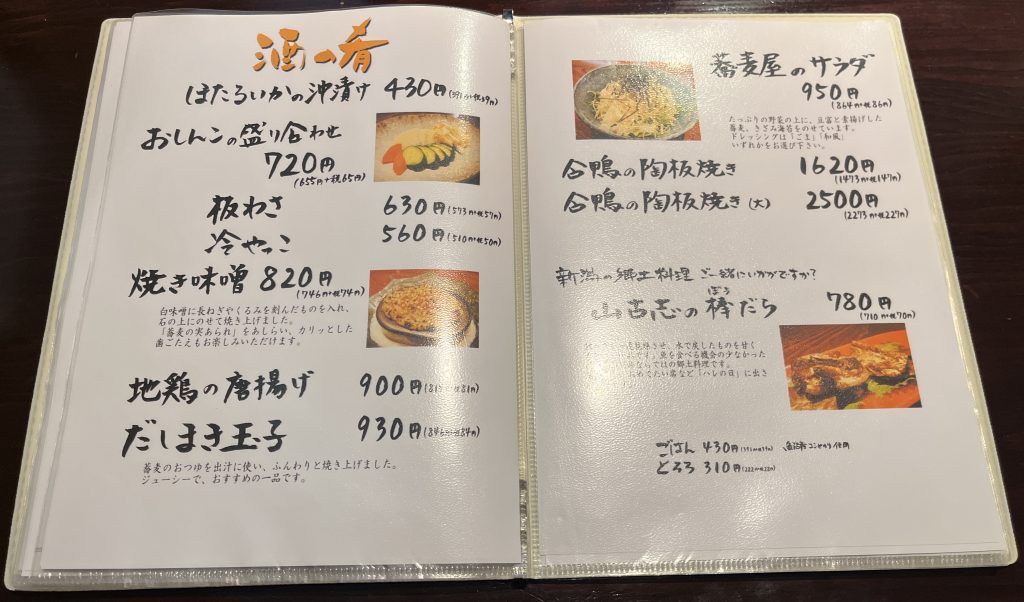 酒の肴
ほたるいかの沖漬け 430円(391円+税39円)
おしんこの盛り合わせ
720円
(655円+税65円)
板わさ 630円(573円+税57円)
冷やっこ 560円(510円+税50円)
焼き味噌 820円
(746円+税74円)
白味噌に長ねぎやくるみを刻んだものを入れ、
石の上にのせて焼き上げました。
「蕎麦の実あられ」をあしらい、カリッとした
歯ごたえもお楽しみいただけます。
地鶏の唐揚げ 900円
だしまき玉子 930円(846円+税84円)
蕎麦のおつゆを出汁に使い、ふんわりと焼き上げました。
ジューシーで、おすすめの一品です。
蕎麦屋のサラダ
950円
(864円+税86円)
たっぷりの野菜の上に、豆富と素揚げした
蕎麦、きざみ海苔をのせています。
ドレッシングは「ごま」「和風」
いずれかをお選び下さい。
合鴨の陶板焼き 1620円
(1473円+税147円)
合鴨の陶板焼き(大) 2500円
(2273円+税227円)
新潟の郷土料理 ご一緒にいかがですか?
山古志の棒だら 780円
ぼう
(710円+税70円)
させ、水で戻したものを甘く
です」魚を食べる機会の少なかった
ならではの郷土料理です。
めでたい席など「ハレの日」に出さ
ごはん 430円(391円+税39円) 魚沼産コシヒカリ使用
とろろ 310円